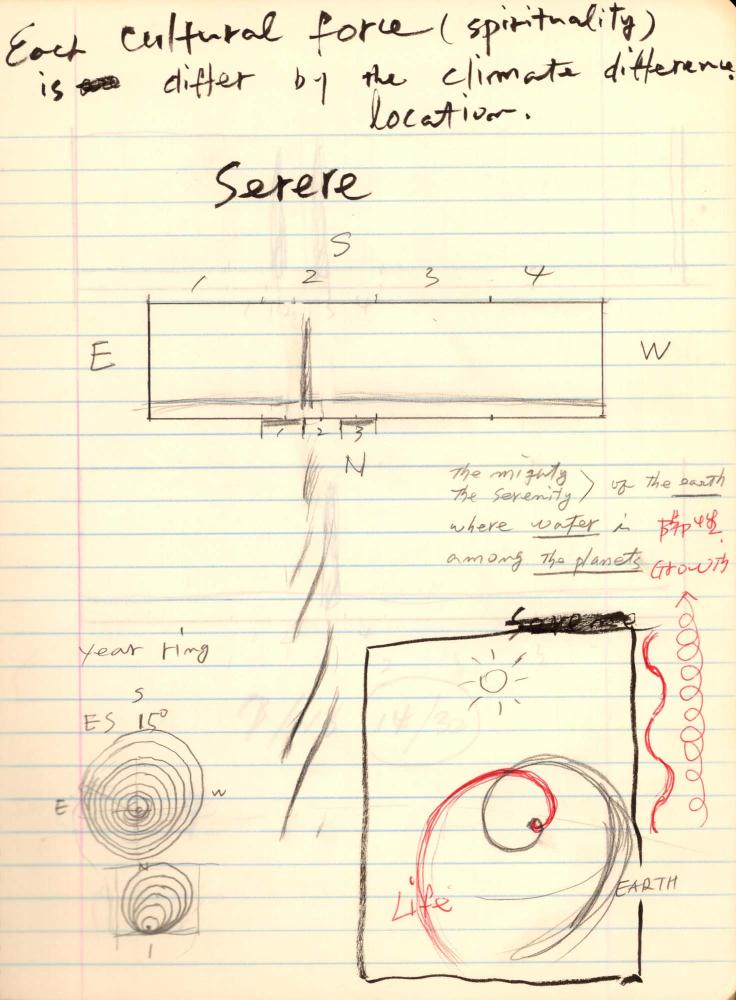 Each cultural force (spirituality)
is differ by the climate difference
location.
Serere
S
1 2 3 4
E W
1 2 3
N
the mighty
the serenity > of the earth
where water is
among the planets Growth
year ring
S
ES 15°
E W
N
1
Life
EARTH